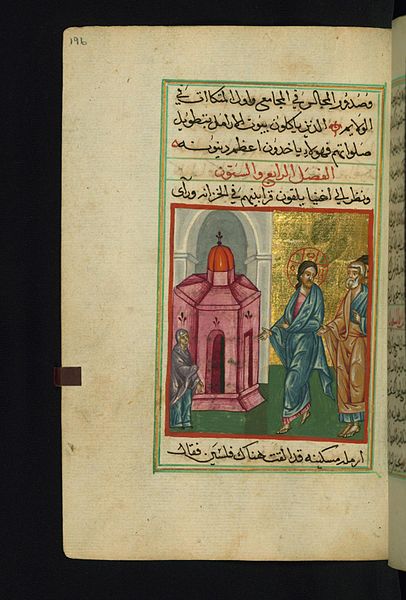 196
وصدور المجالس في المجامع واول المتكاات في
الولايم الذين ياكلون بيوت الارامل بتطويل
صلواتهم فهولاء ياخذون اعظم دينونه
الفصل الرابع والستون
ونظر الي اغنيا يلقون قرابينهم في الخزاين وراي
ارمله مسكينه قد القت هناك فلسين فقال